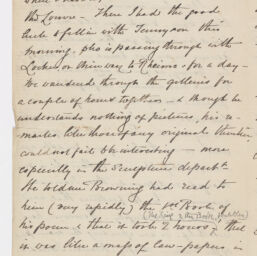 the Louvre - There I had the good
luck to fall in with Tennyson this
morning, who is passing through with
Locker on their way to Rheims - for a day -
We wandered through the galleries for
a couple of hours together - & though he
understands nothing of pictures, his re-
marks like those of any original thinker
could not fail to be interesting - more
especially in the Sculpture departt.
He told me Browning had read to
him (very rapidly) the 1st Book of
his poem & that it took 2 hours & that
(The Ring & the Book)
it was like a mass of law-papers in